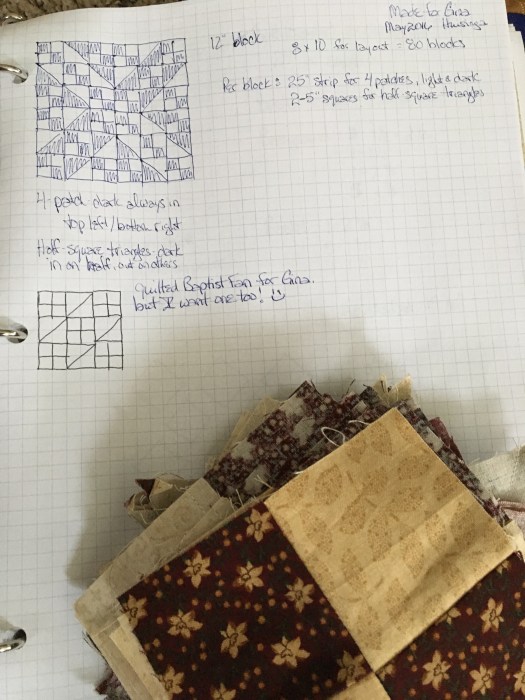 Made for Gina
May 2016
12" block
8 x 10 for layout = 80 blocks
Per block: 2.5" strip for 4 patches, light & dark
2-5" squares for half square triangles
4-patch dark always in
top left/bottom right
Half-square triangles dark
in on half, out on others
Quilted Baptist Fan for Gina.
but I want one too!